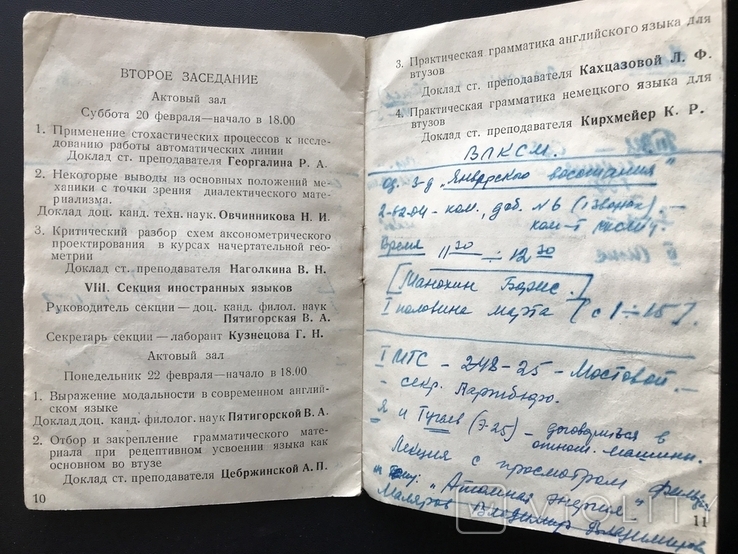 ВТОРОЕ ЗАСЕДАНИЕ
Актовый зал
Суббота 20 февраля—начало в 18.00
1. Применение стохастических процессов к иссле-
дованию работы автоматических линии
Доклад ст. преподавателя Георгалина Р. А.
2. Некоторые выводы из основных положений ме-
ханики с точки зрения диалектического мате-
риализма.
Доклад доц. канд. техн. наук Овчинникова Н. И.
3. Критический разбор схем аксонометрического
проектирования в курсах начертательной гео-
метрии
Доклад ст. преподавателя Наголкина В. Н.
VIII. Секция иностранных языков
Руководитель секции — доц. канд. филол. наук
Пятигорская В. А.
Секретарь секции — лаборант Кузнецова Г. Н.
Актовый зал
Понедельник 22 февраля—начало в 18.00
1. Выражение модальности в современном англий-
ском языке
Доклад доц. канд. филолог. наук Пятигорской В. А.
2. Отбор и закрепление грамматического мате-
риала при рецептивном усвоении языка как
основном во втузе
Доклад ст. преподавателя Цебржинской А. П.
10
3. Практическая грамматика английского языка для
втузов
Доклад ст. преподавателя Кахцазовой Л. Ф.
4. Практическая грамматика немецкого языка для
втузов
Доклад ст. преподавателя Кирхмейер К. Р.
ВЛКСМ.
3-д "Январского восстания"
2-62-04 - ком., доб. №6 (1 звонок) -
ком-т
Время 11 30 ÷ 12 30
[Манохин Борис.]
I половина марта [с 1÷15].
I МТС - 248-25 - Мостовой. -
- секр. Партбюро.
Я и Тугаев (Э-25) - договориться в
относ. машины.
Лекция с просмотром фильма
на тему: "Атомная энергия"
Маляров Владимир Владимиров
11
VIOLITY